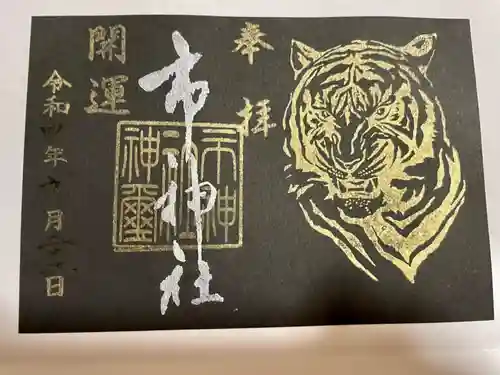 奉拝
市神社
開運
令和四年 月 日
市神社神璽